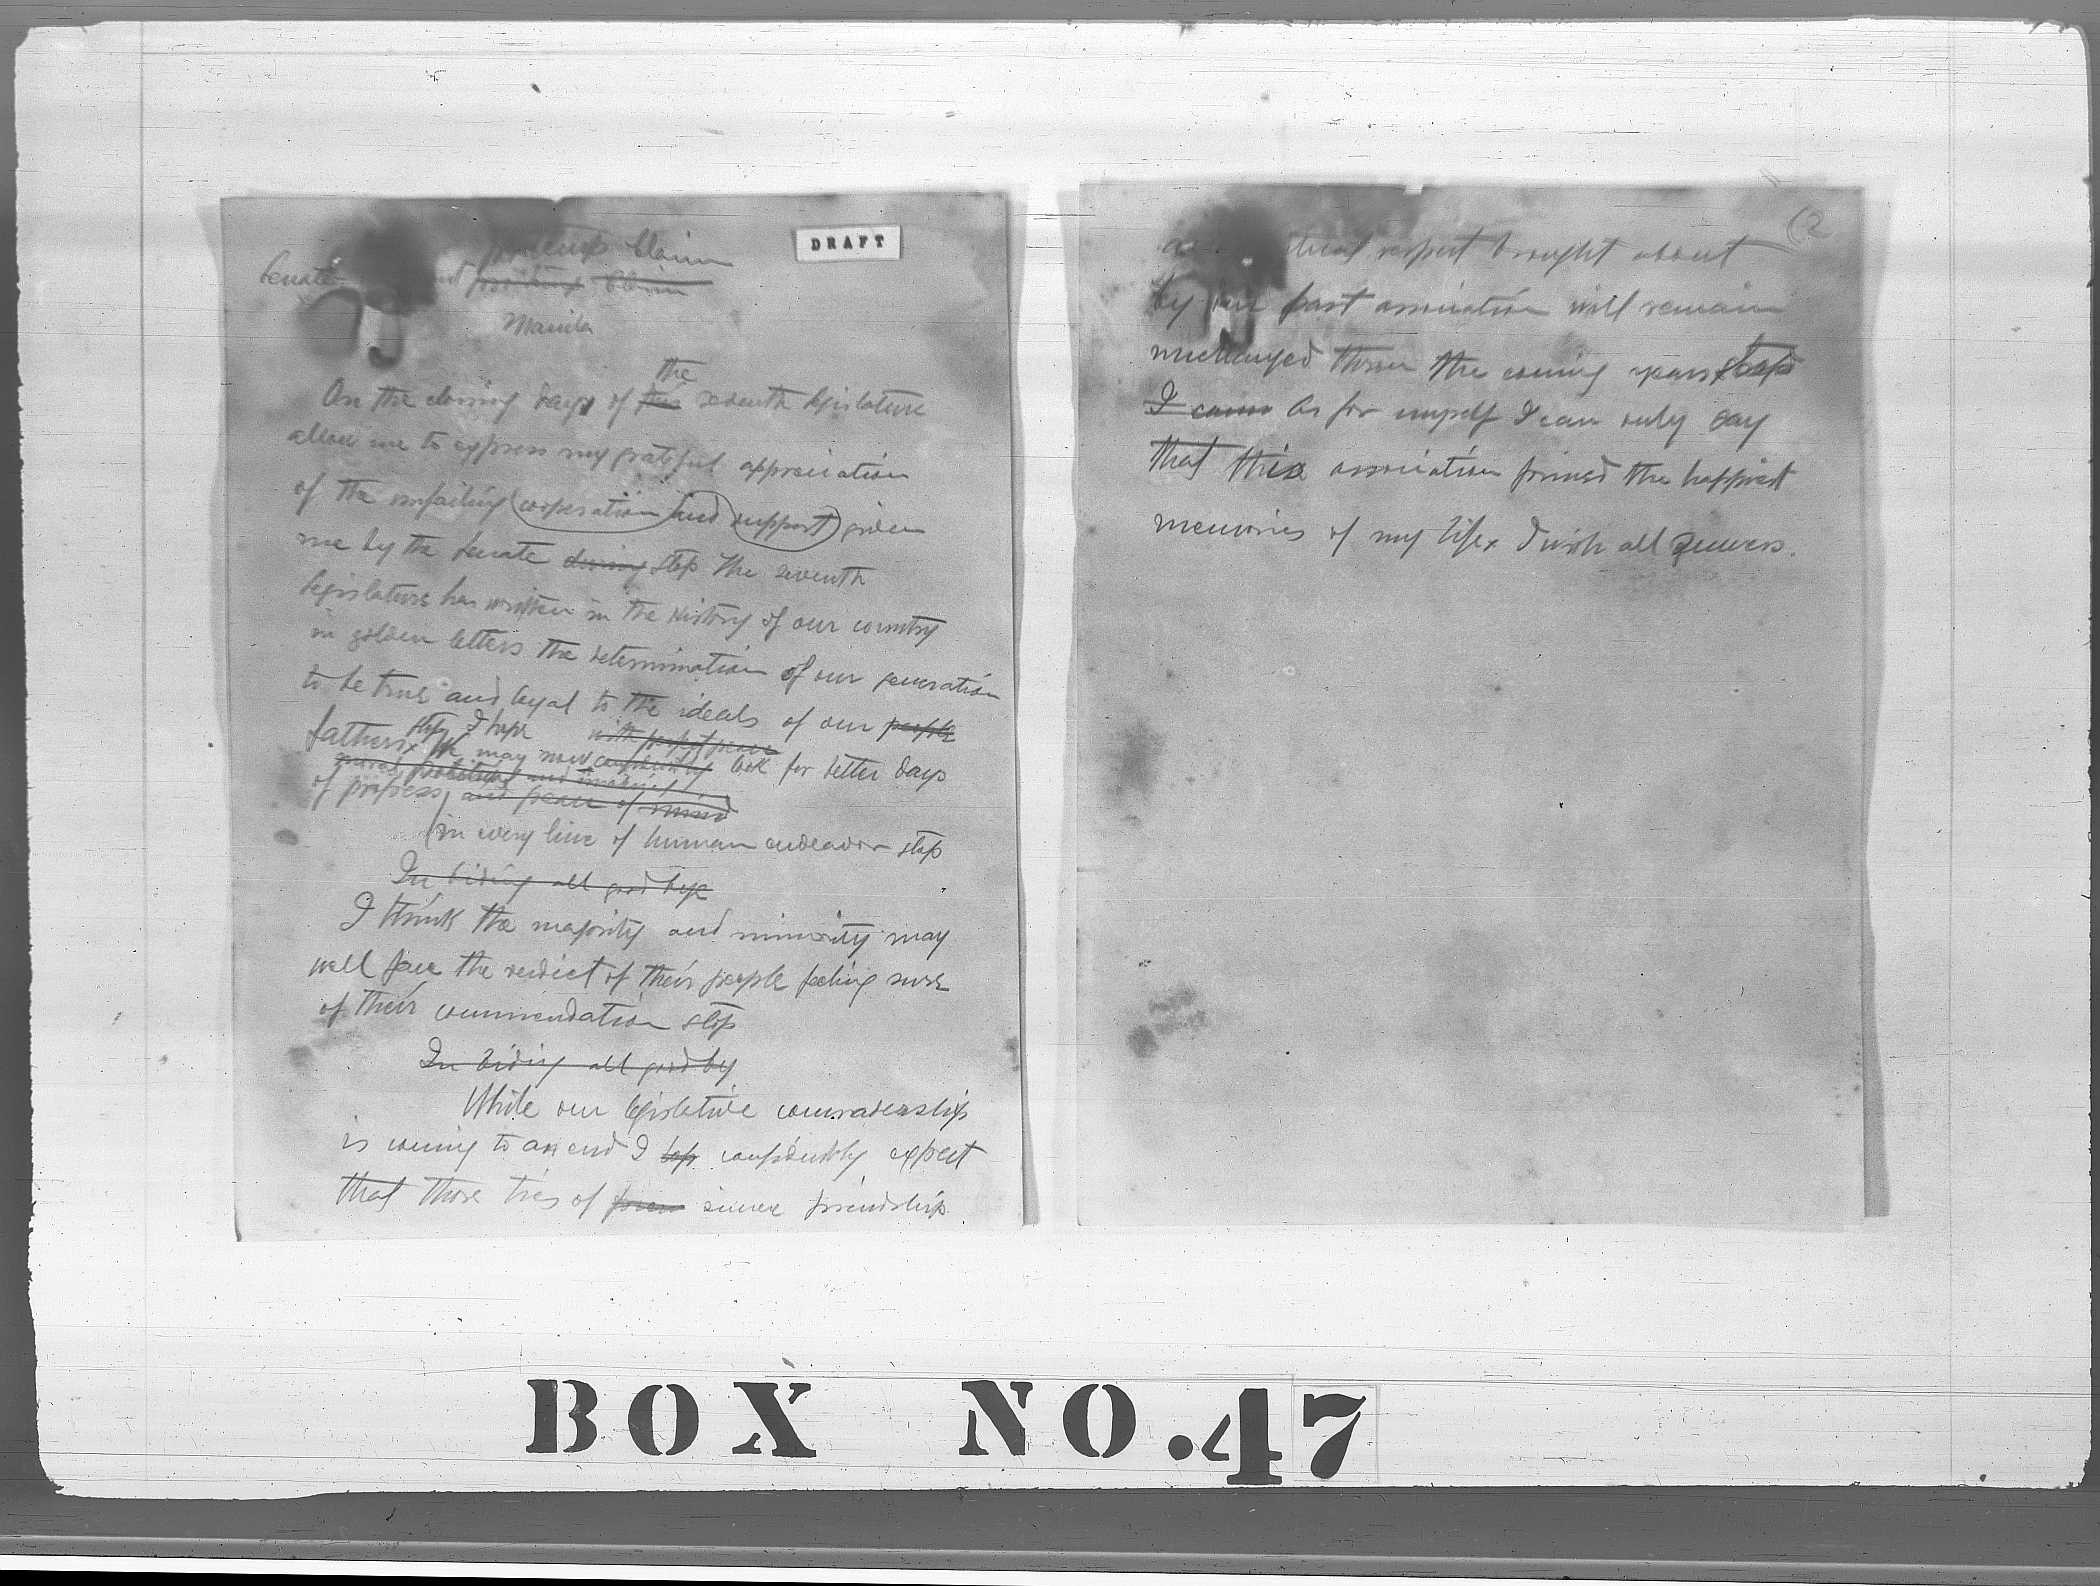 DRAFT
Senate
Manila
the
On the closing days of this seventh legislature
allow me to express my grateful appreciation
of the unfailing cooperation and support given
me by the Senate during stop The seventh
legislature has written in the history of our country
in golden letters the determination of our generation
to be true and loyal to the ideals of our people
stop I hope with perfect peace
fathers we may now confidently look for better days
moral, political and
of progress and peace of mind
in every line of human endeavor stop
In biding all good bye
I think the majority and minority may
well face the verdict of their people feeling sure
of their commendation stop
In biding all good by
While our legislative comradeship
is coming to an end I confidently expect
that those ties of sincere friendship
(2
respect brought about
by our past association will remain
unchanged through the coming years stop
I As for myself I can only say
that this association formed the happiest
memories of my life I wish all
BOX NO. 47